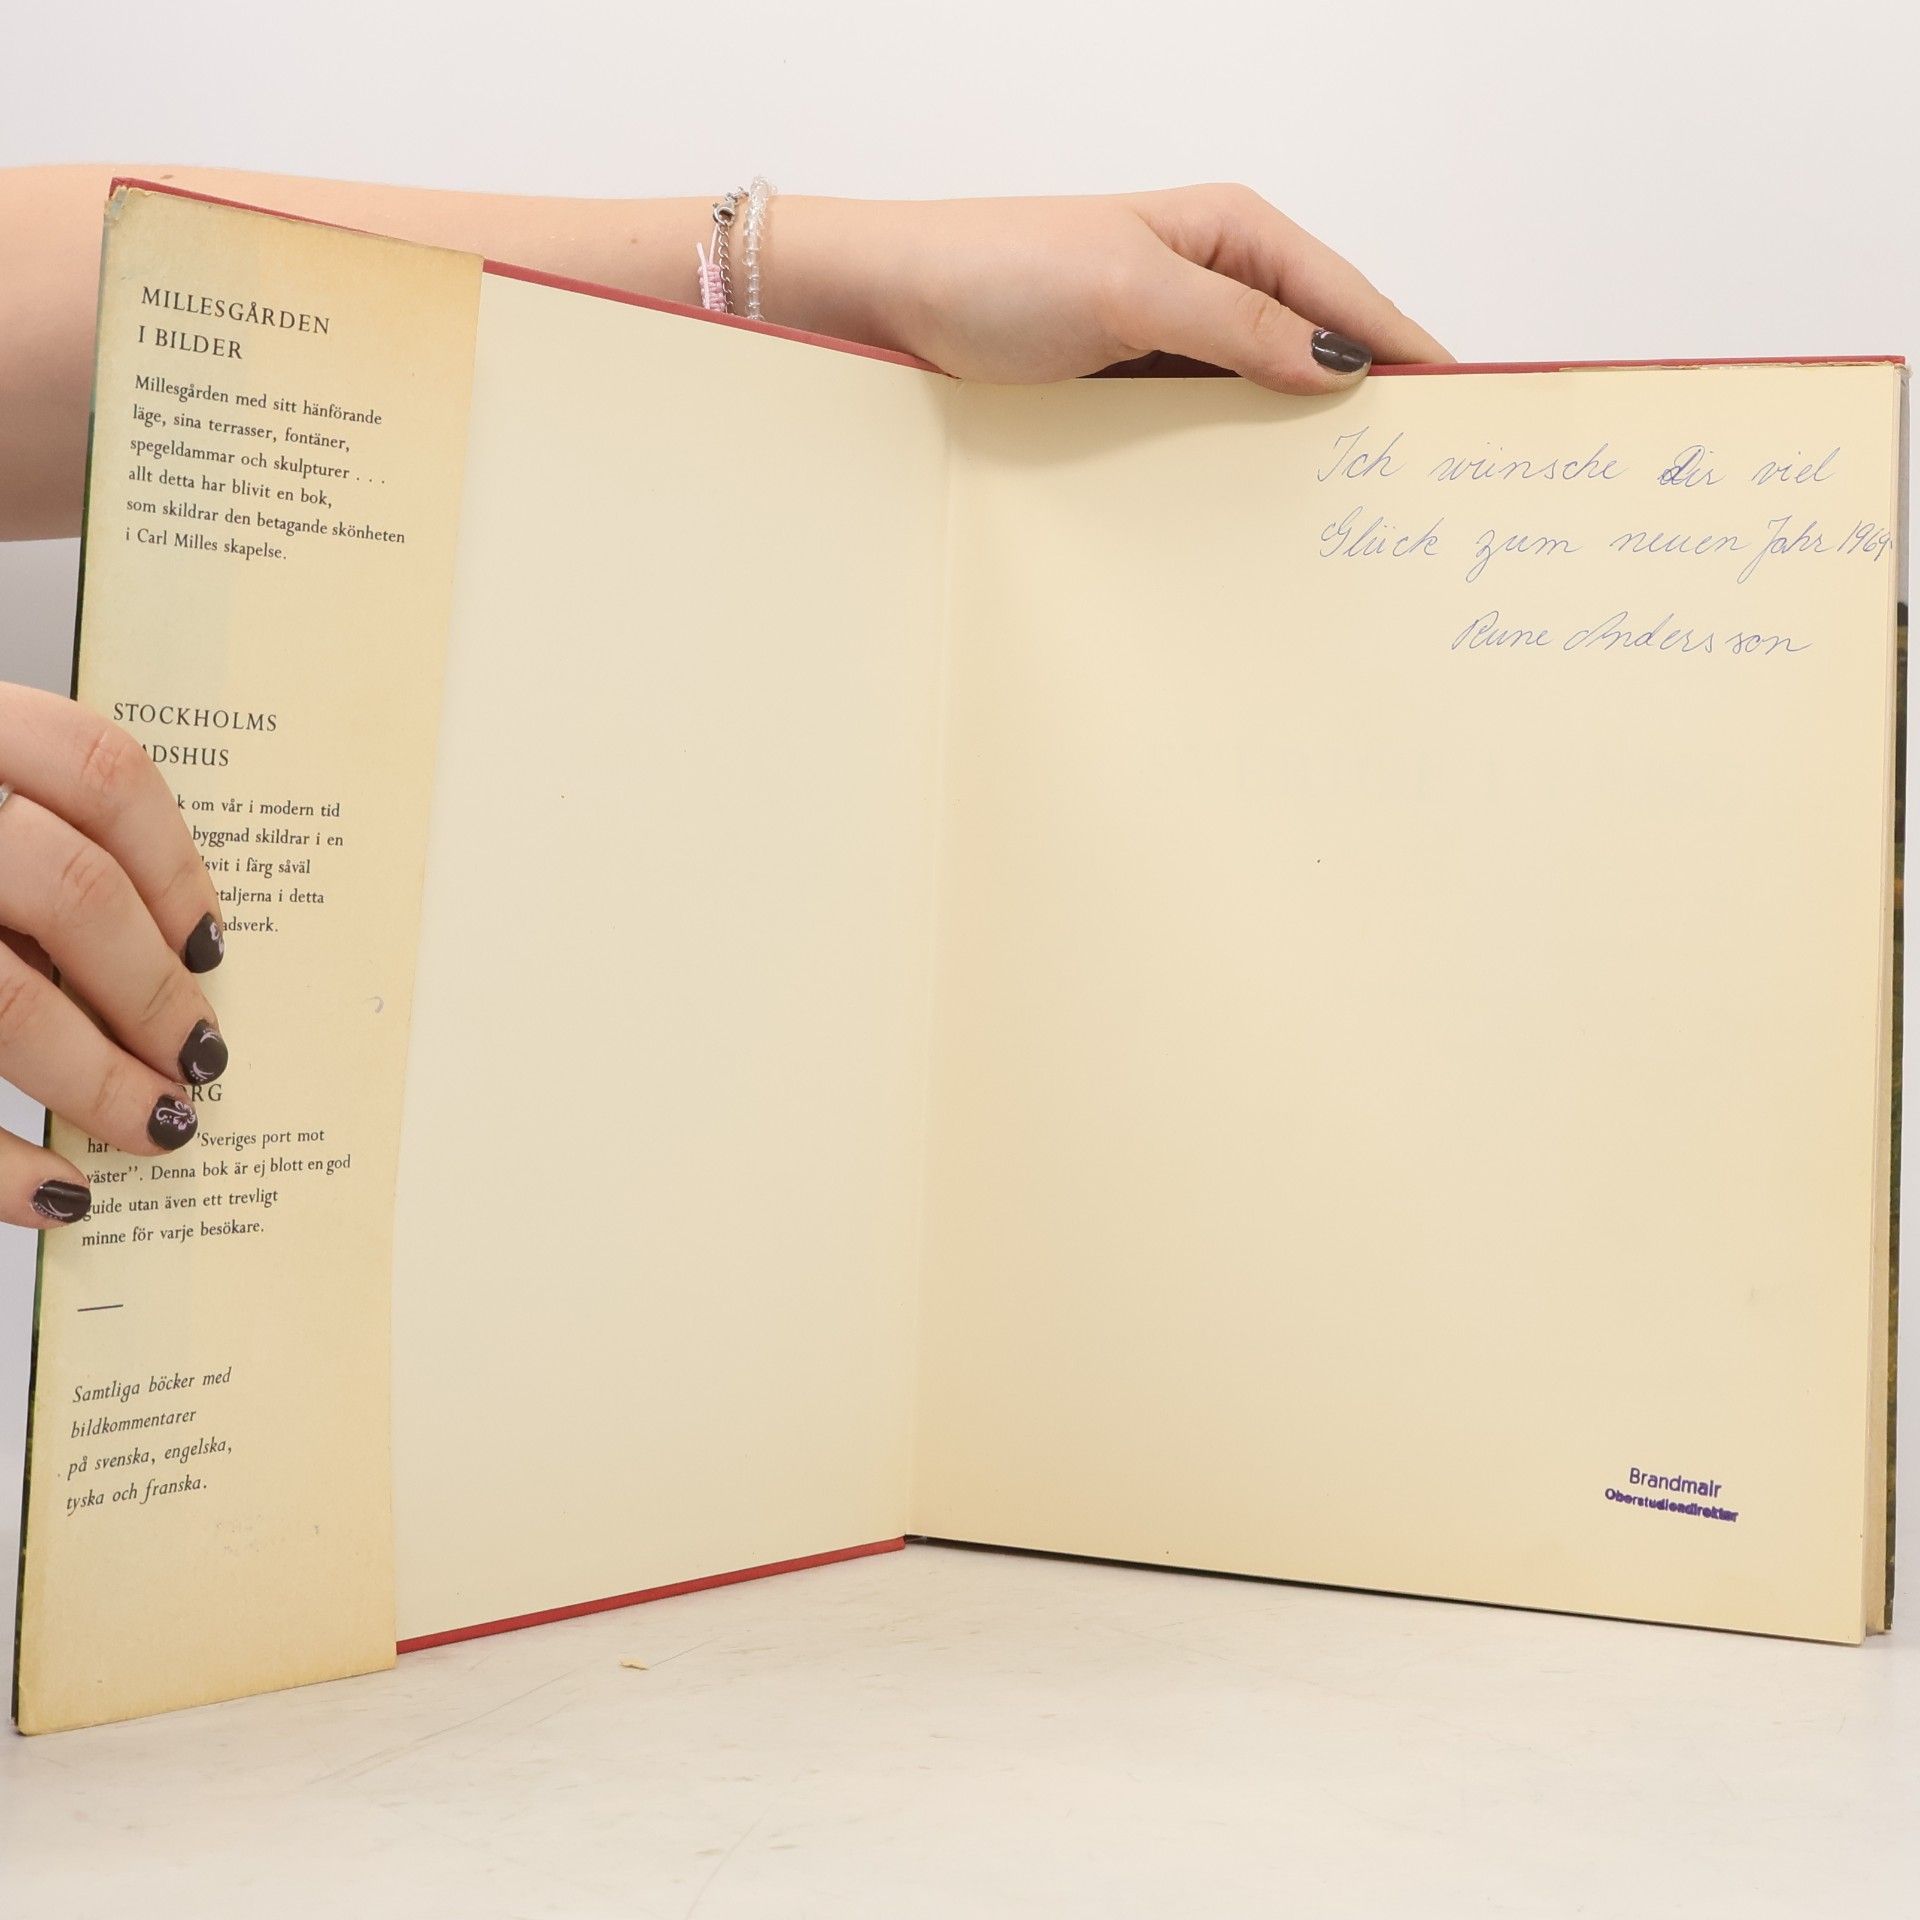 MILLESGÅRDEN
I BILDER
Millesgården med sitt hänförande
läge, sina terrasser, fontäner,
spegeldammar och skulpturer . . .
allt detta har blivit en bok,
som skildrar den betagande skönheten
i Carl Milles skapelse.
STOCKHOLMS
ADSHUS
k om vår i modern tid
byggnad skildrar i en
svit i färg såväl
etaljerna i detta
adsverk.
RG
har 'Sveriges port mot
väster''. Denna bok är ej blott en god
guide utan även ett trevligt
minne för varje besökare.
Samtliga böcker med
bildkommentarer
på svenska, engelska,
tyska och franska.
Ich wünsche Dir viel
Glück zum neuen Jahr 1969
Rune Andersson
Brandmair
Oberstudiendirektor